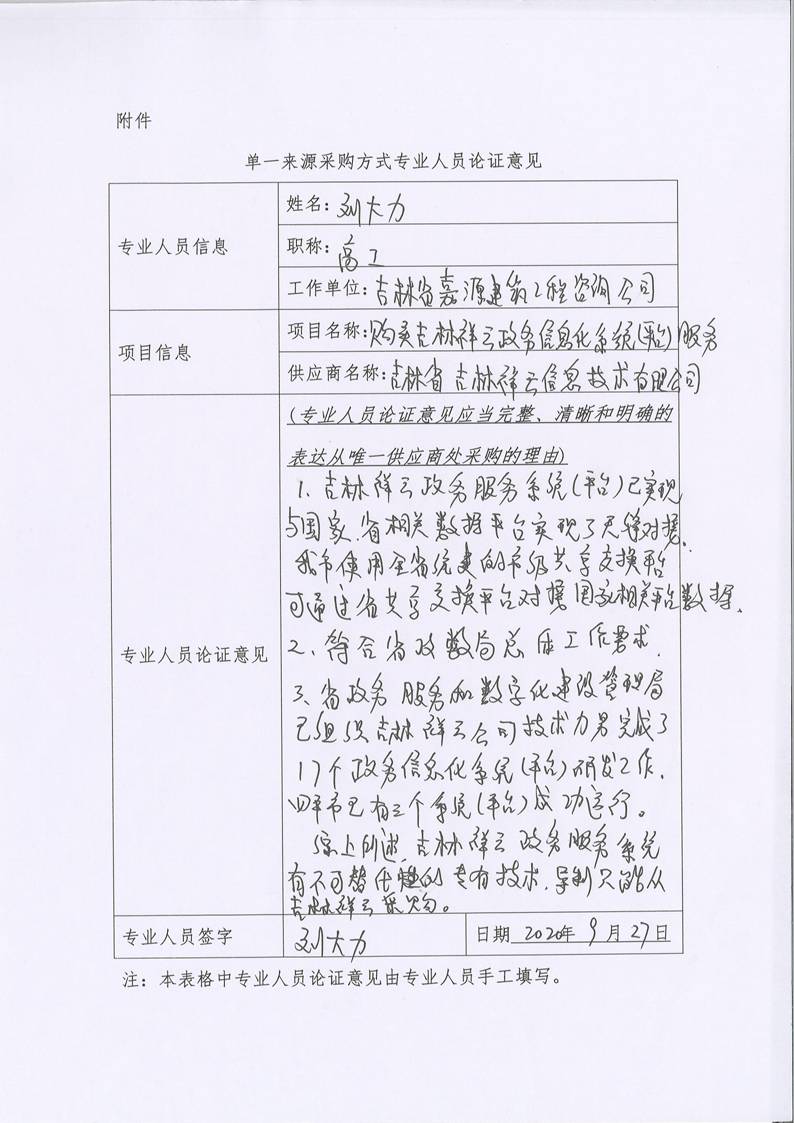 附件
单一来源采购方式专业人员论证意见
专业人员信息
姓名：刘大力
职称：高工
工作单位：吉林省嘉源建筑工程咨询公司
项目信息
项目名称：购买吉林祥云政务信息化系统(平台)服务
供应商名称：吉林省吉林祥云信息技术有限公司
专业人员论证意见
(专业人员论证意见应当完整、清晰和明确的
表达从唯一供应商处采购的理由)
1、吉林祥云政务服务系统(平台)已实现
与国家、省相关数据平台实现了无缝对接、
我市使用全省统建的市级共享交换平台
可通过省共享交换平台对接国家相关平台数据、
2、符合省政数局总体工作要求、
3、省政务服务和数字化建设管理局
已组织吉林祥云公司技术力量完成了
17个政务信息化系统(平台)研发工作、
四平市已有三个系统(平台)成功运行。
综上所述，吉林祥云政务服务系统
有不可替代性的专有技术，导致只能从
吉林祥云采购。
专业人员签字
刘大力
日期 2020年9月27日
注：本表格中专业人员论证意见由专业人员手工填写。